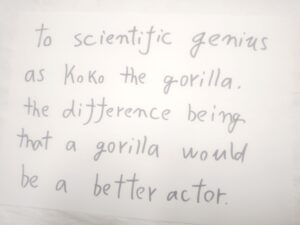 to scientific genius
as Koko the gorilla.
the difference being
that a gorilla would
be a better actor.